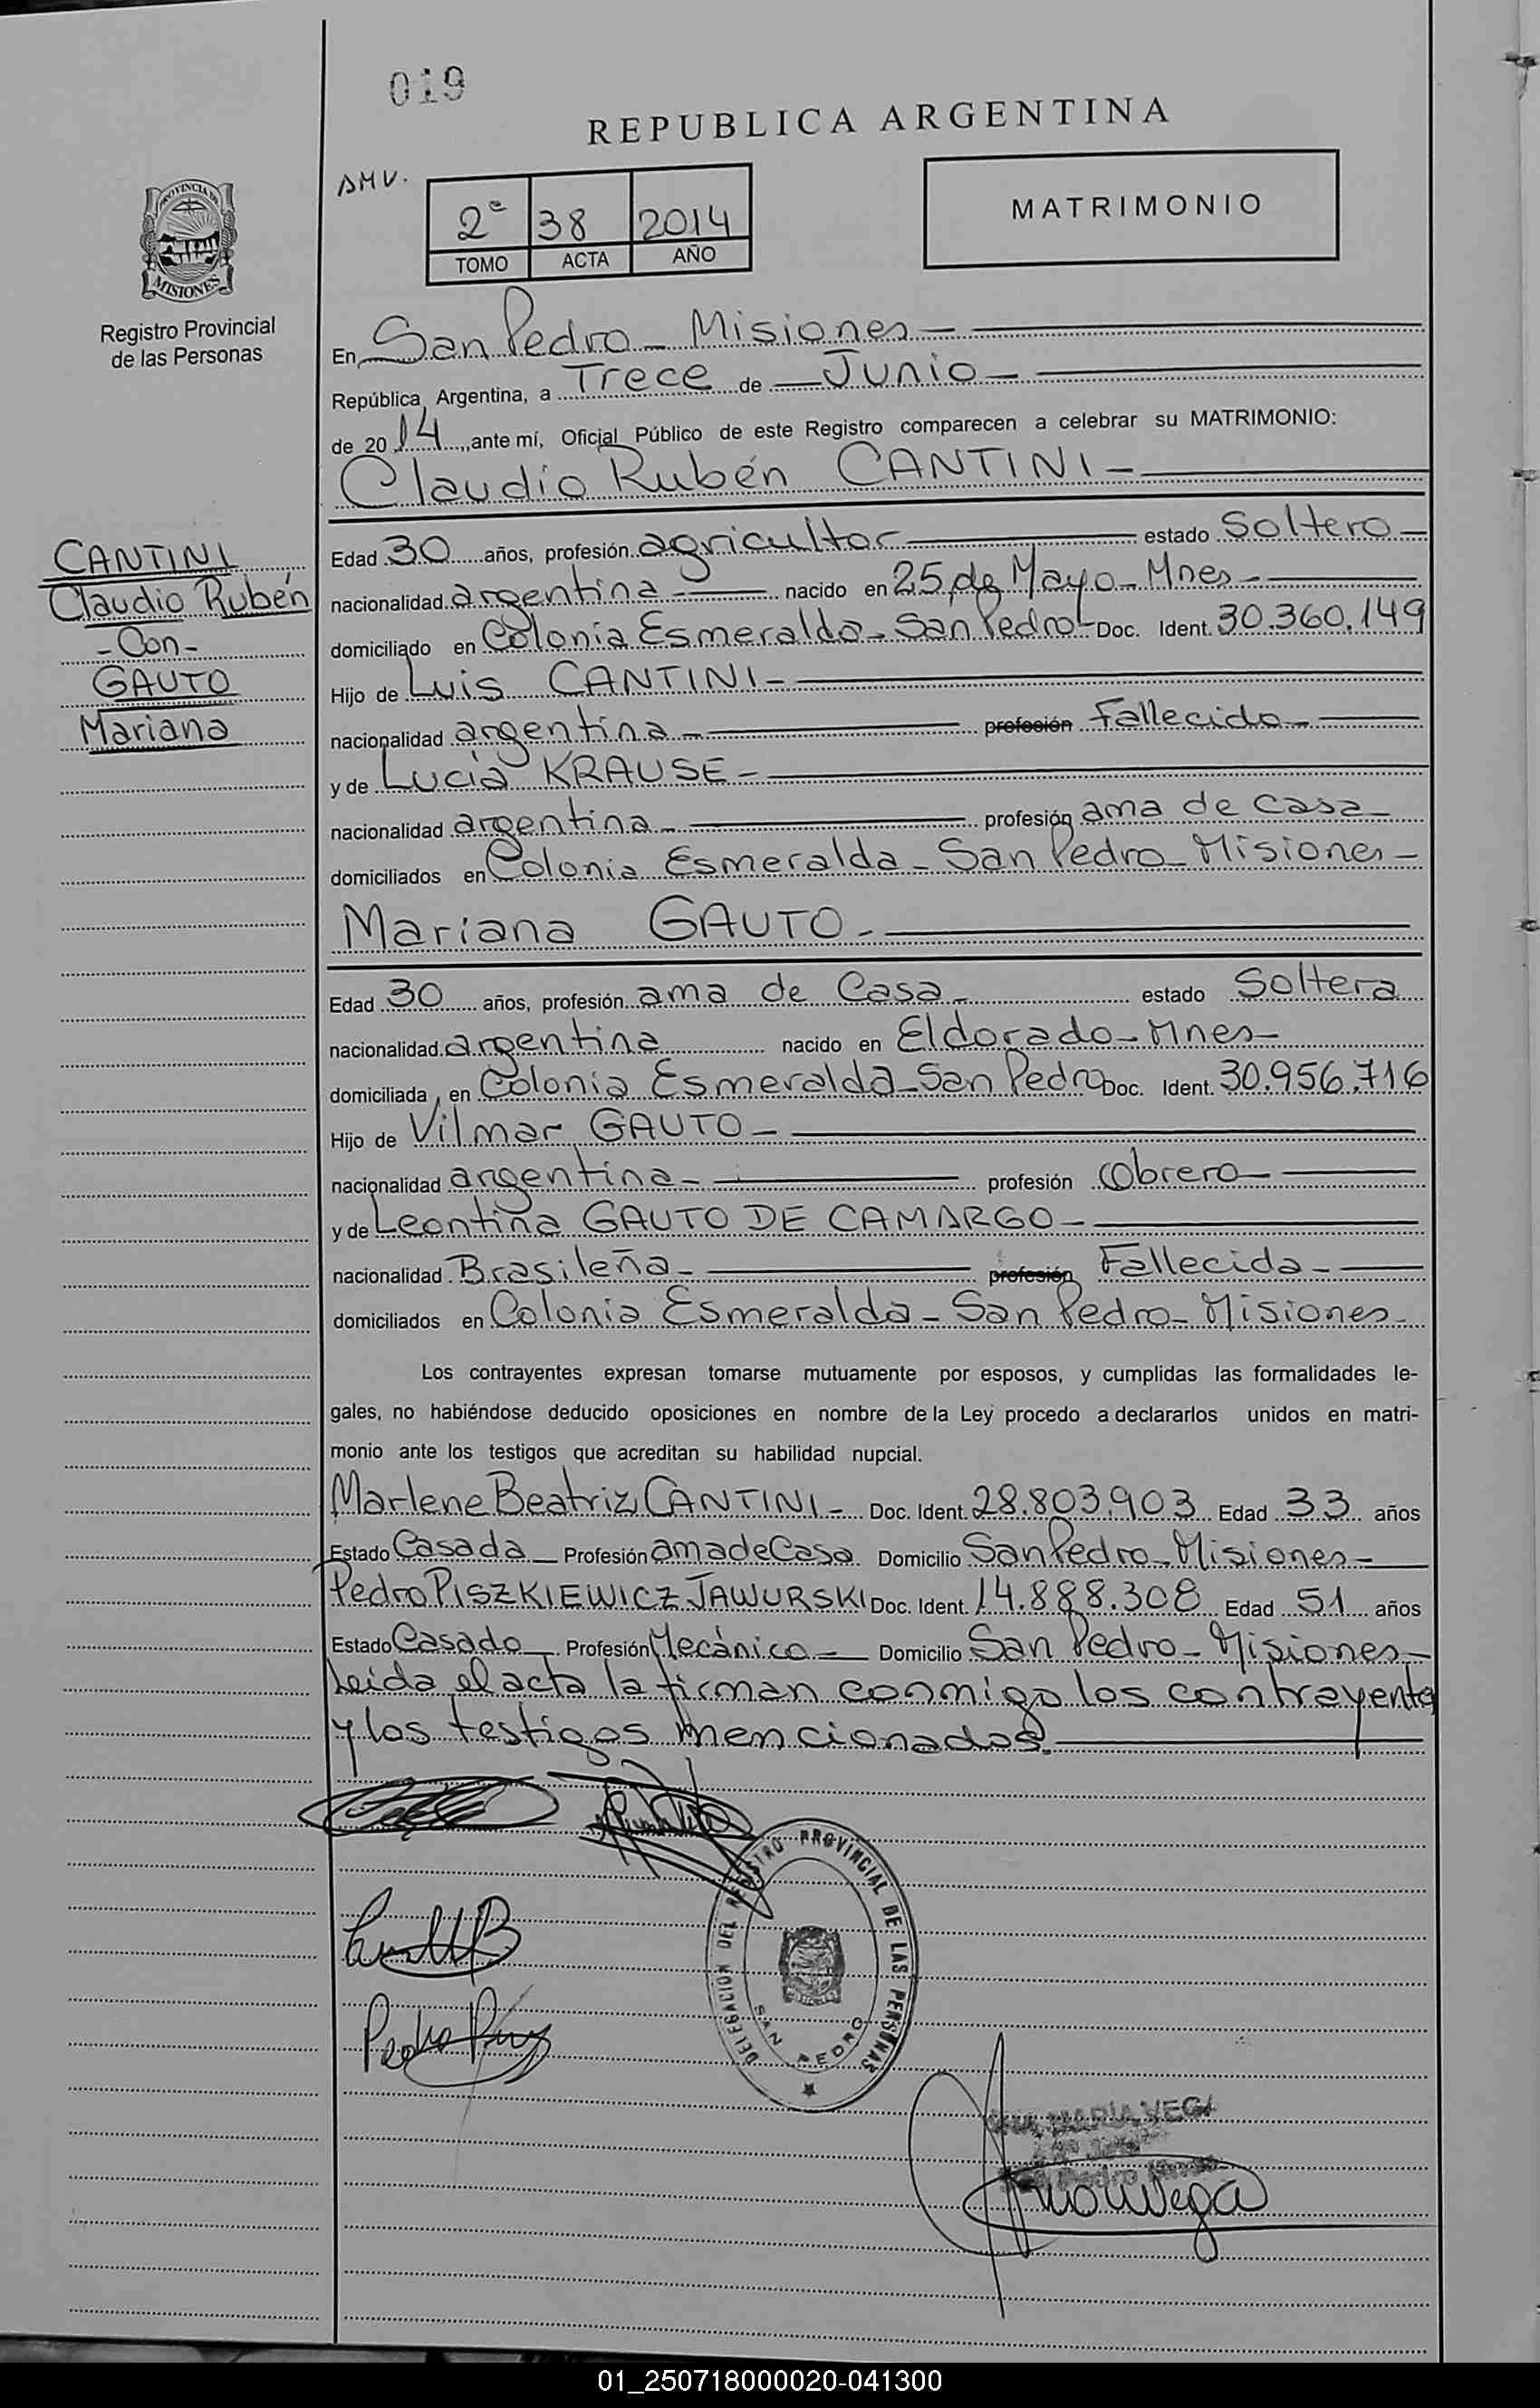 019
REPUBLICA ARGENTINA
AMV.
2º 38 2014
TOMO ACTA AÑO
MATRIMONIO
PROVINCIA DE
MISIONES
Registro Provincial
de las Personas
En San Pedro - Misiones -
República Argentina, a Trece de - Junio -
de 20 14, ante mí, Oficial Público de este Registro comparecen a celebrar su MATRIMONIO:
Claudio Rubén CANTINI -
CANTINI
Claudio Rubén
- Con -
GAUTO
Mariana
Edad 30 años, profesión agricultor estado Soltero -
nacionalidad argentina - nacido en 25 de Mayo - Mnes -
domiciliado en Colonia Esmeralda - San Pedro - Doc. Ident. 30.360.149
Hijo de Luis CANTINI -
nacionalidad argentina - profesión Fallecido -
y de Lucia KRAUSE -
nacionalidad argentina - profesión ama de casa -
domiciliados en Colonia Esmeralda - San Pedro - Misiones -
Mariana GAUTO -
Edad 30 años, profesión ama de Casa - estado Soltera
nacionalidad argentina nacido en Eldorado - Mnes -
domiciliada en Colonia Esmeralda - San Pedro Doc. Ident. 30.956.716
Hijo de Vilmar GAUTO -
nacionalidad argentina - profesión Obrero -
y de Leontina GAUTO DE CAMARGO -
nacionalidad Brasileña - profesión Fallecida -
domiciliados en Colonia Esmeralda - San Pedro - Misiones -
Los contrayentes expresan tomarse mutuamente por esposos, y cumplidas las formalidades le-
gales, no habiéndose deducido oposiciones en nombre de la Ley procedo a declararlos unidos en matri-
monio ante los testigos que acreditan su habilidad nupcial.
Marlene Beatriz CANTINI - Doc. Ident. 28.803.903 Edad 33 años
Estado Casada - Profesión ama de Casa Domicilio San Pedro - Misiones -
Pedro PISZKIEWICZ JAWURSKI Doc. Ident. 14.888.308 Edad 51 años
Estado Casado - Profesión Mecánico - Domicilio San Pedro - Misiones -
Leida el acta la firman conmigo los contrayentes
y los testigos mencionados.
DELEGACION DEL REGISTRO PROVINCIAL DE LAS PERSONAS
SAN PEDRO
Pedro
MARIA VEGA
San Pedro
Vega
01_250718000020-041300